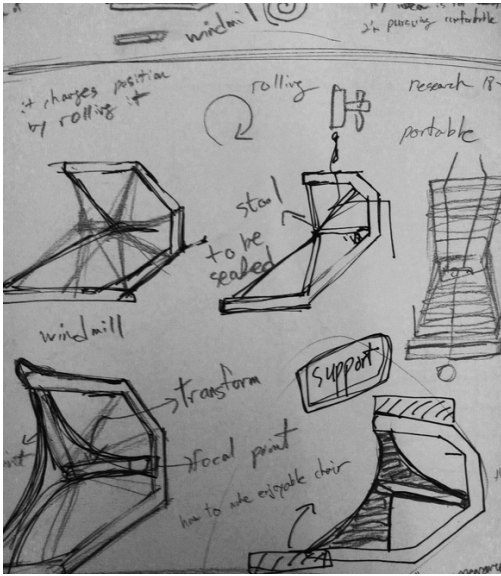 windmill
it changes position
by rolling it
rolling
research
portable
stool
to be
sealed
windmill
transform
support
focal point
how to make enjoyable chair